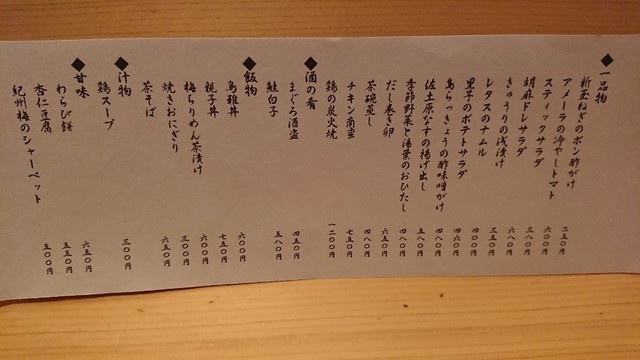 ◆一品物
新玉ねぎのポン酢がけ 二五〇円
アメーラの冷やしトマト 六〇〇円
スティックサラダ 三八〇円
胡麻ドレサラダ 六八〇円
きゅうりの浅漬け 三五〇円
レタスのナムル 四〇〇円
里芋のポテトサラダ 四六〇円
島らっきょうの酢味噌がけ 四八〇円
佐土原なすの揚げ出し 五八〇円
季節野菜と湯葉のおひたし 四八〇円
だし巻き卵 六五〇円
茶碗蒸し 四八〇円
チキン南蛮 七五〇円
鶏の炭火焼 一二〇〇円
◆酒の肴
まぐろ酒盗 四五〇円
鮭白子 五八〇円
◆飯物
六〇〇円
親子丼 七五〇円
梅ちりめん茶漬け 六〇〇円
焼きおにぎり 三〇〇円
茶そば 六五〇円
◆汁物
鶏スープ 三〇〇円
◆甘味
わらび餅 六五〇円
杏仁豆腐 五五〇円
紀州梅のシャーベット 五〇〇円